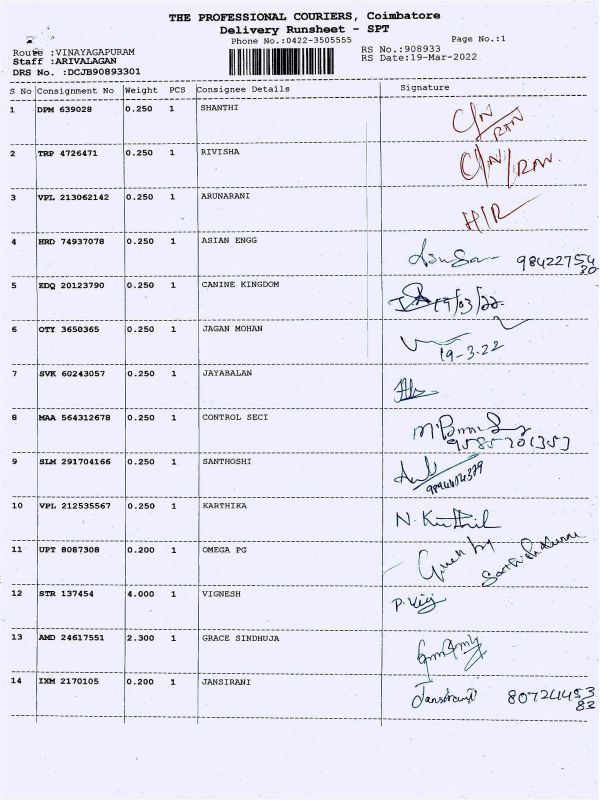 THE PROFESSIONAL COURIERS, Coimbatore
Delivery Runsheet - SPT
Phone No.:0422-3505555
Page No.:1
Route :VINAYAGAPURAM
RS No.:908933
Staff :ARIVALAGAN
RS Date:19-Mar-2022
DRS No. :DCJB90893301
S No Consignment No Weight PCS Consignee Details Signature
1 DPM 639028 0.250 1 SHANTHI C/N
RTN
2 TRP 4726471 0.250 1 RIVISHA C/N/RTN.
3 VPL 213062142 0.250 1 ARUNARANI H/R
4 HRD 74937078 0.250 1 ASIAN ENGG 98422754
30
5 EDQ 20123790 0.250 1 CANINE KINGDOM 19/03/22
6 OTY 3650365 0.250 1 JAGAN MOHAN
19-3-22
7 SVK 60243057 0.250 1 JAYABALAN
8 MAA 564312678 0.250 1 CONTROL SECI
9 SLM 291704166 0.250 1 SANTHOSHI
10 VPL 212535567 0.250 1 KARTHIKA N.
11 UPT 8087308 0.200 1 OMEGA PG Given by
12 STR 137454 4.000 1 VIGNESH P.
13 AMD 24617551 2.300 1 GRACE SINDHUJA
14 IXM 2170105 0.200 1 JANSIRANI Jansirani 80724453
83